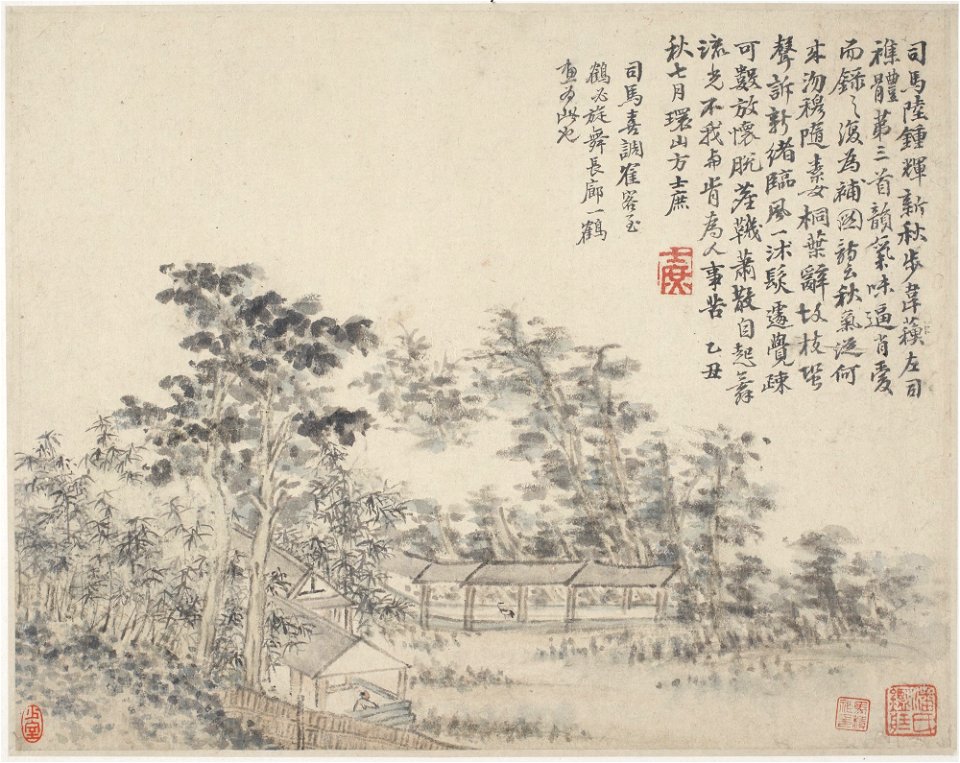 司馬陸鍾輝新秋步韋蘇左司
襍體第三首韻氣味逼肖愛
而錄之復為補圖詩云秋氣從何
來沕穆隨素女桐葉辭故枝蛩
聲訴新緒臨風一沐髮遽覺疎
可數放懷脫塵鞿蕭散自起舞
流光不我與肯為人事苦 乙丑
秋七月環山方士庶
司馬喜調崔客至
鶴必旋舞長廊一鶴
畫為此也
士庶
潘氏